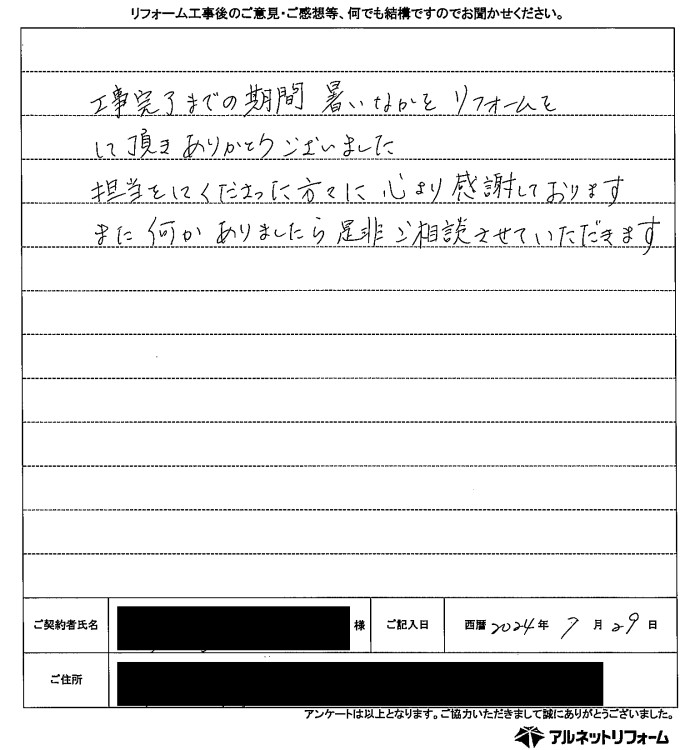 リフォーム工事後のご意見・ご感想等、何でも結構ですのでお聞かせください。
工事完了までの期間 暑いなかを リフォームを
して頂き ありがとうございました
担当をしてくださった方々に 心より 感謝しております
また 何か ありましたら 是非 ご相談させていただきます
ご契約者氏名 様 ご記入日 西暦 2024 年 7 月 29 日
ご住所
アンケートは以上となります。ご協力いただきまして誠にありがとうございました。
アルネットリフォーム